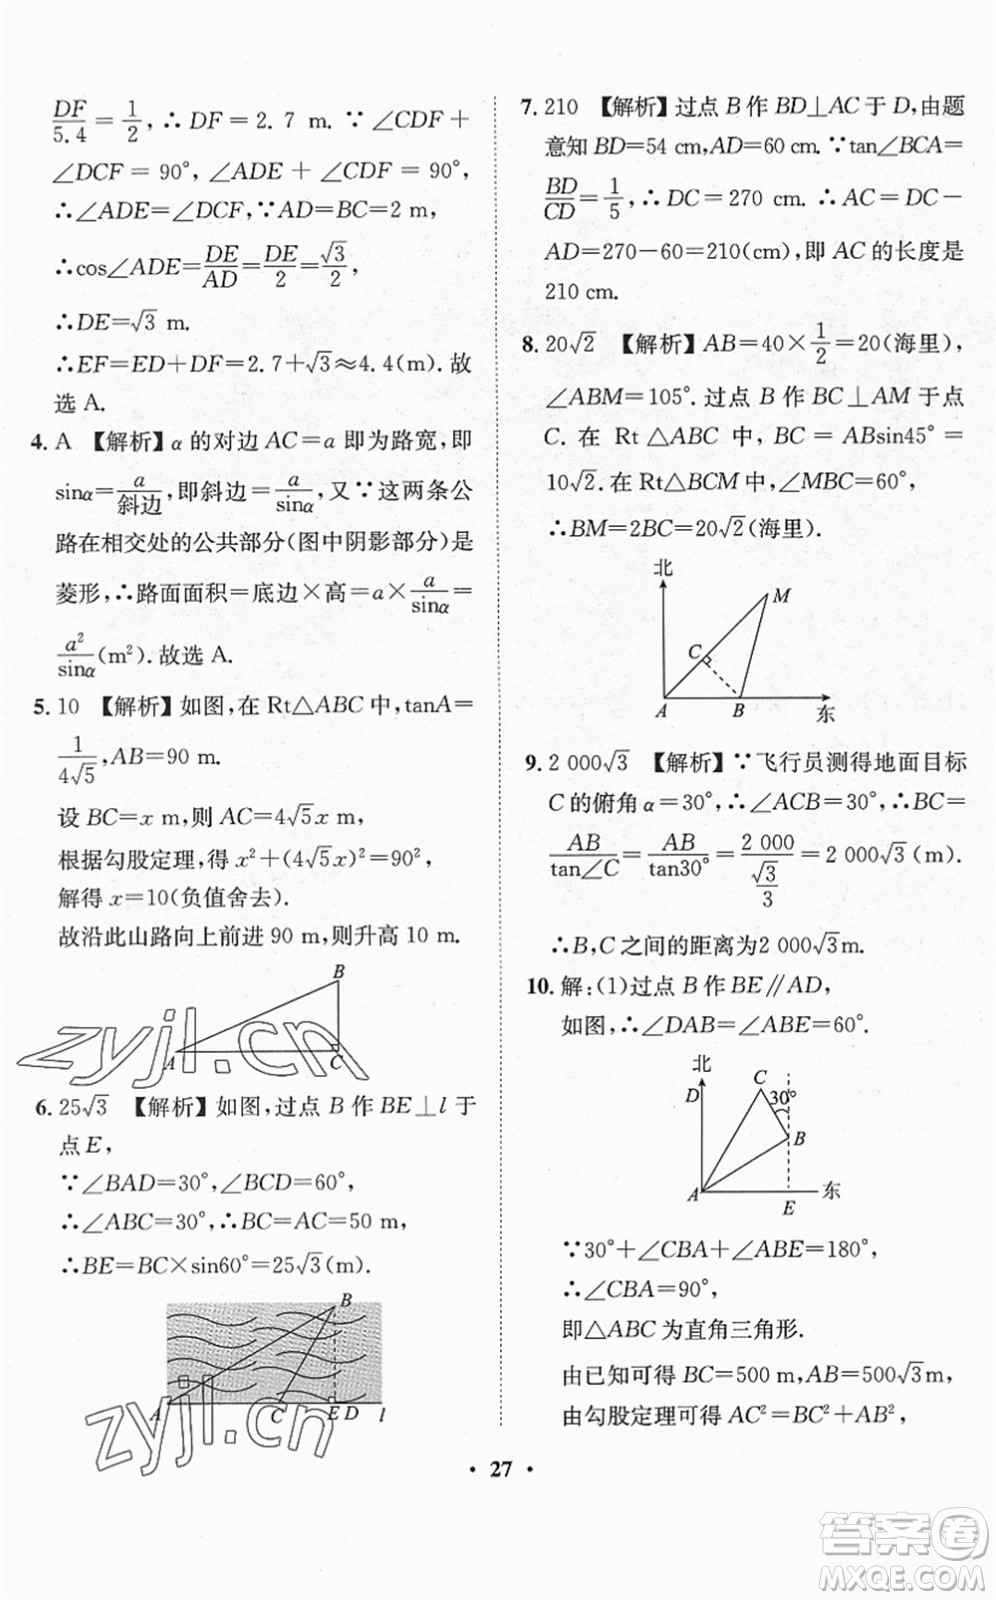 DF/5.4=1/2,∴DF=2.7 m.∵∠CDF+
∠DCF=90°,∠ADE+∠CDF=90°,
∴∠ADE=∠DCF,∵AD=BC=2 m,
∴cos∠ADE=DE/AD=DE/2=√3/2,
∴DE=√3 m.
∴EF=ED+DF=2.7+√3≈4.4(m).故
选 A.
4. A 【解析】α 的对边 AC=a 即为路宽,即
sinα=a/斜边,即斜边=a/sinα,又∵这两条公
路在相交处的公共部分(图中阴影部分)是
菱形,∴路面面积=底边×高=a×a/sinα=
a²/sinα(m²).故选 A.
5. 10 【解析】如图,在 Rt△ABC 中,tanA=
1/4√5,AB=90 m.
设 BC=x m,则 AC=4√5x m,
根据勾股定理,得 x²+(4√5x)²=90²,
解得 x=10(负值舍去).
故沿此山路向上前进 90 m,则升高 10 m.
B
A
C
zyjl.cn
6. 25√3 【解析】如图,过点 B 作 BE⊥l 于
点 E,
∵∠BAD=30°,∠BCD=60°,
∴∠ABC=30°,∴BC=AC=50 m,
∴BE=BC×sin60°=25√3(m).
B
A C E D l
zyjl.cn
7. 210 【解析】过点 B 作 BD⊥AC 于 D,由题
意知 BD=54 cm,AD=60 cm.∵tan∠BCA=
BD/CD=1/5,∴DC=270 cm.∴AC=DC-
AD=270-60=210(cm),即 AC 的长度是
210 cm.
8. 20√2 【解析】AB=40×1/2=20(海里),
∠ABM=105°.过点 B 作 BC⊥AM 于点
C. 在 Rt△ABC 中,BC=ABsin45°=
10√2.在 Rt△BCM 中,∠MBC=60°,
∴BM=2BC=20√2(海里).
北
M
C
A B 东
9. 2 000√3 【解析】∵飞行员测得地面目标
C 的俯角 α=30°,∴∠ACB=30°,∴BC=
AB/tan∠C=AB/tan30°=2 000/(√3/3)=2 000√3(m).
∴B,C 之间的距离为2 000√3m.
10. 解:(1)过点 B 作 BE∥AD,
如图,∴∠DAB=∠ABE=60°.
北
D C 30°
B
A 东
E
∵30°+∠CBA+∠ABE=180°,
∴∠CBA=90°,
即△ABC 为直角三角形.
由已知可得 BC=500 m,AB=500√3m,
由勾股定理可得 AC²=BC²+AB²,
• 27 •
答案圈
MXQE.COM